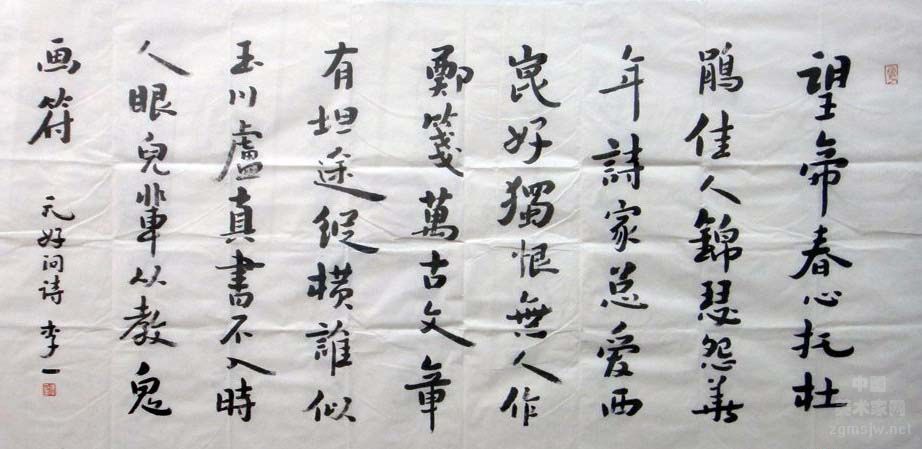 望帝春心托杜
鹃佳人錦瑟怨華
年詩家总爱西
崑好獨恨無人作
鄭箋萬古文章
有坦途縱横誰似
玉川盧真書不入時
人眼兒輩从教鬼
画符
元好问诗 李一
中國
美术家网
zgmsjw.net